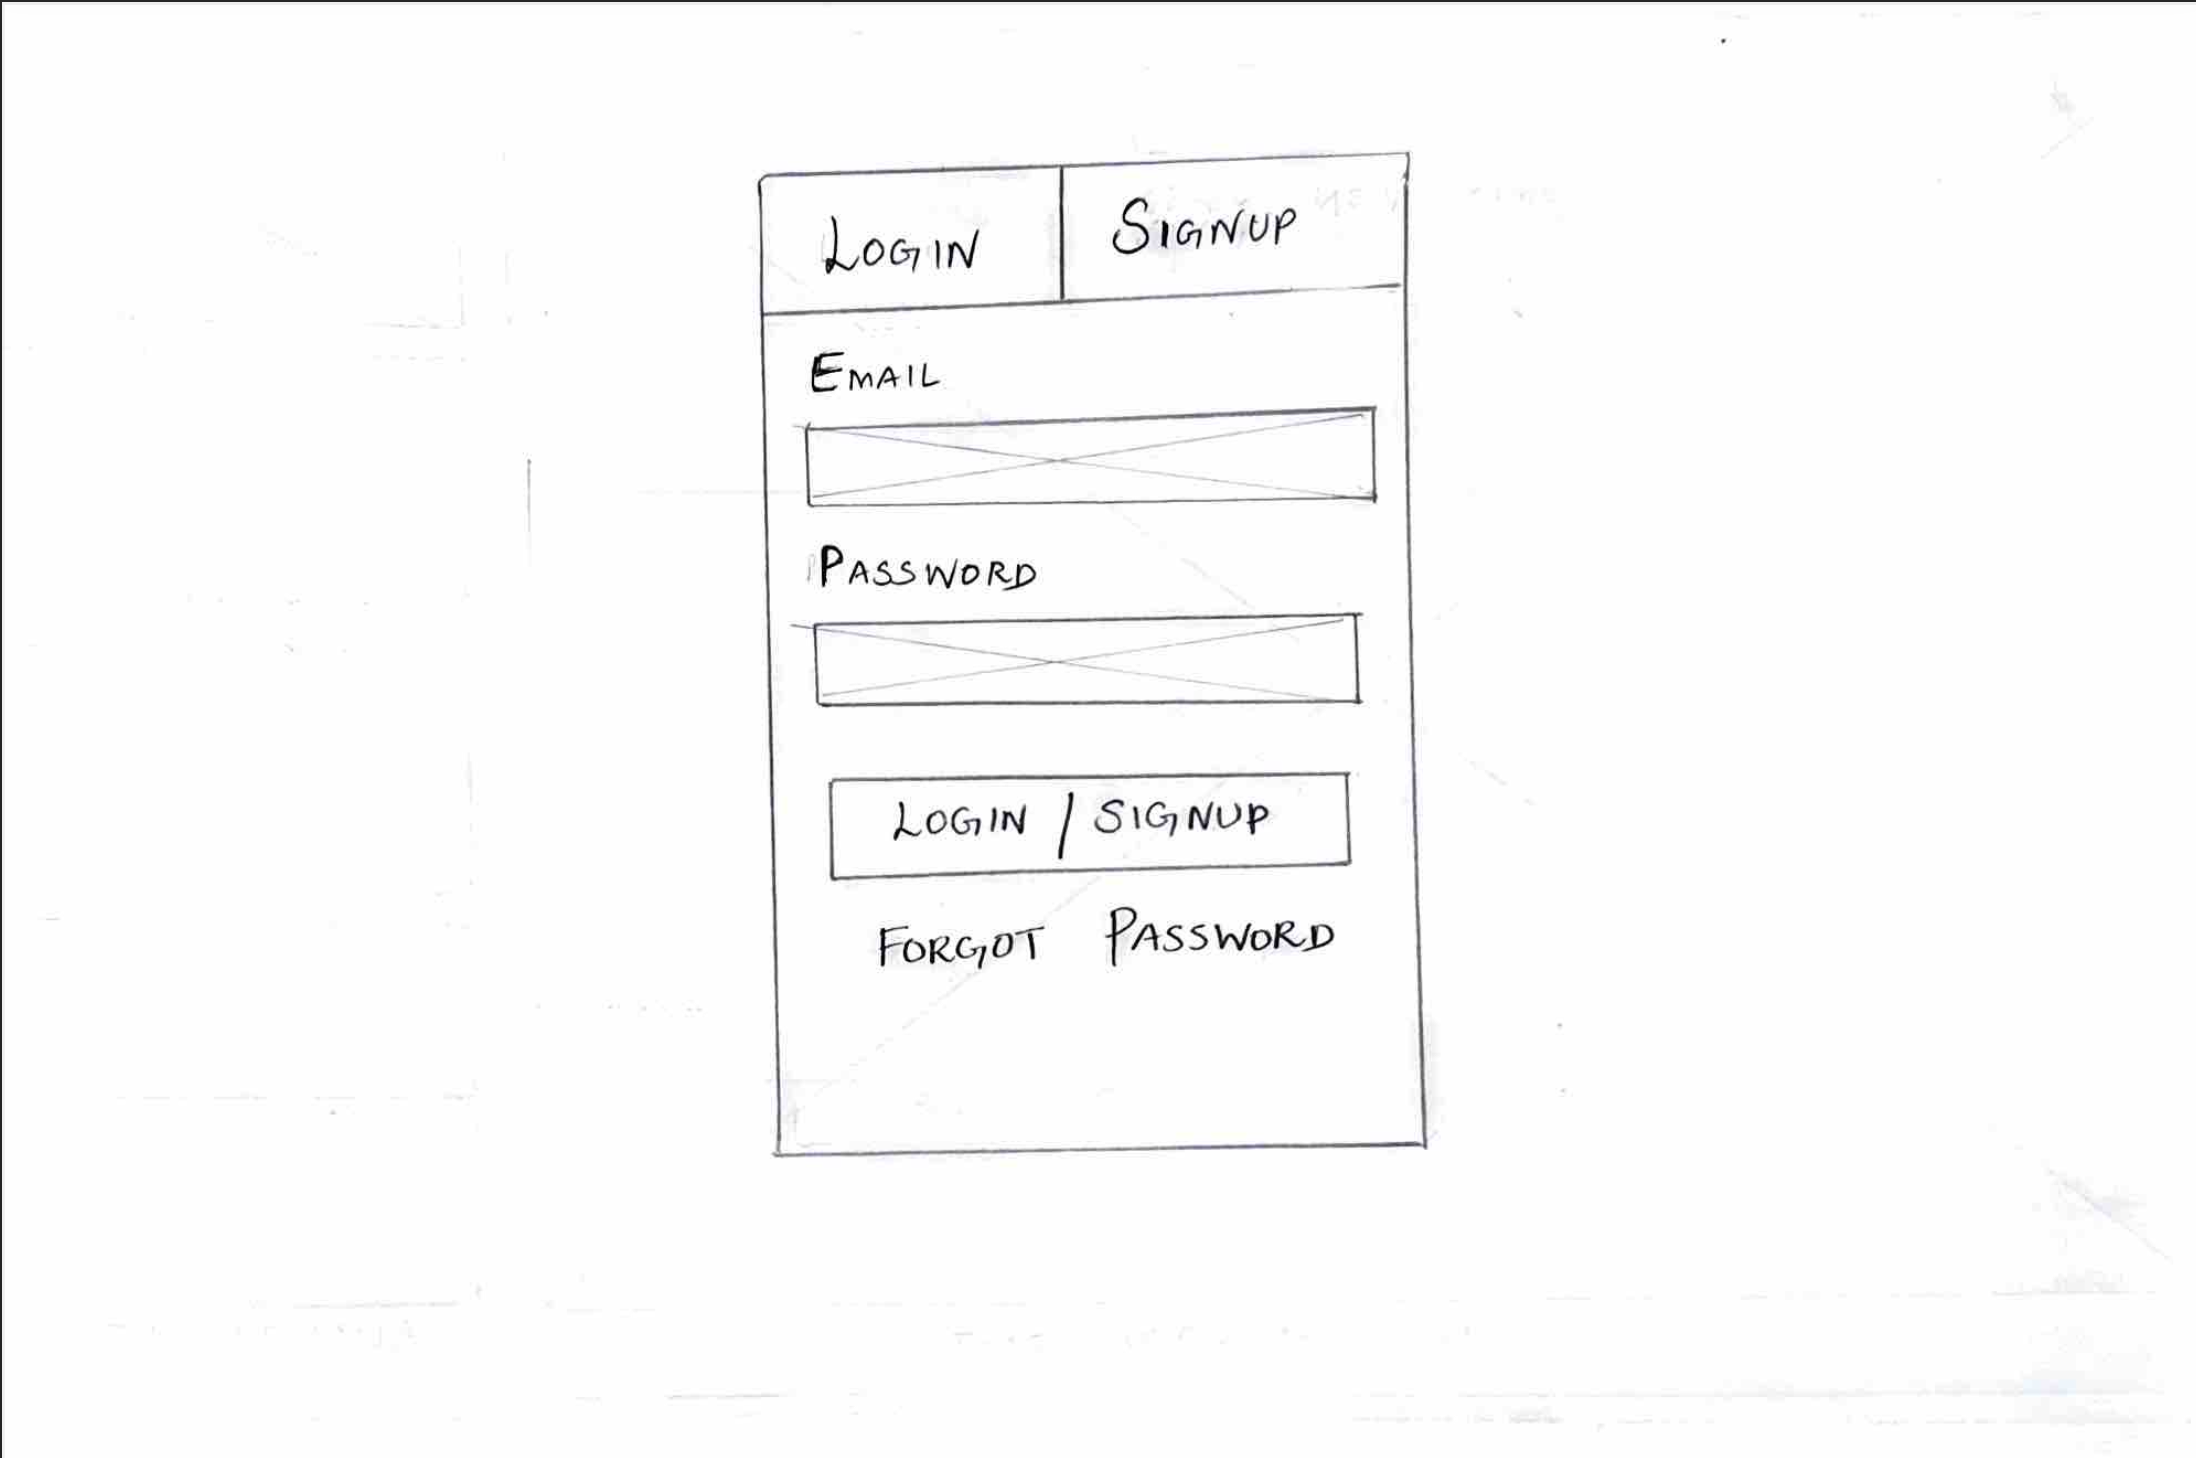 LOGIN SIGNUP
EMAIL
PASSWORD
LOGIN / SIGNUP
FORGOT PASSWORD